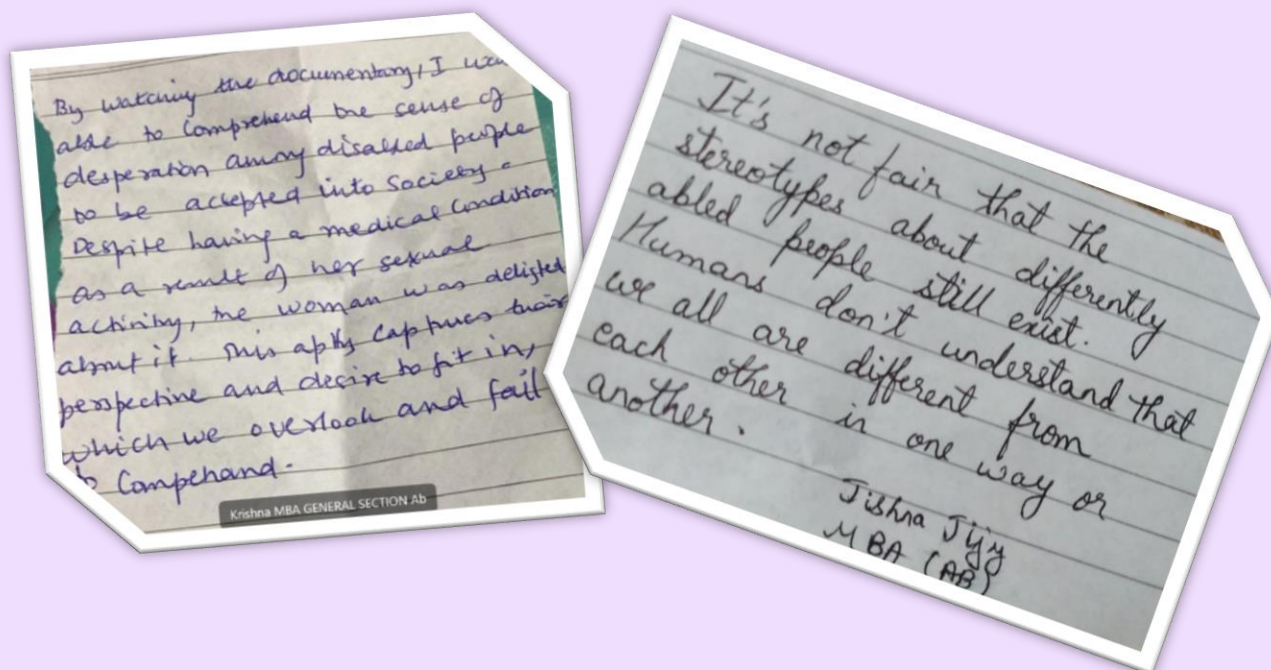 By watching the documentary, I
able to Comprehend the sense of
desperation among disabled people
to be accepted into Society.
Despite having a medical Condition
as a result of her sexual
activity, the woman was delighted
about it. This aptly captures their
perspective and desire to fit in,
which we overlook and fail
to Compehand.
Krishna MBA GENERAL SECTION Ab
It's not fair that the
stereotypes about differently
abled people still exist.
Humans don't understand that
we all are different from
each other in one way or
another.
Jishna Jijy
MBA (AB)